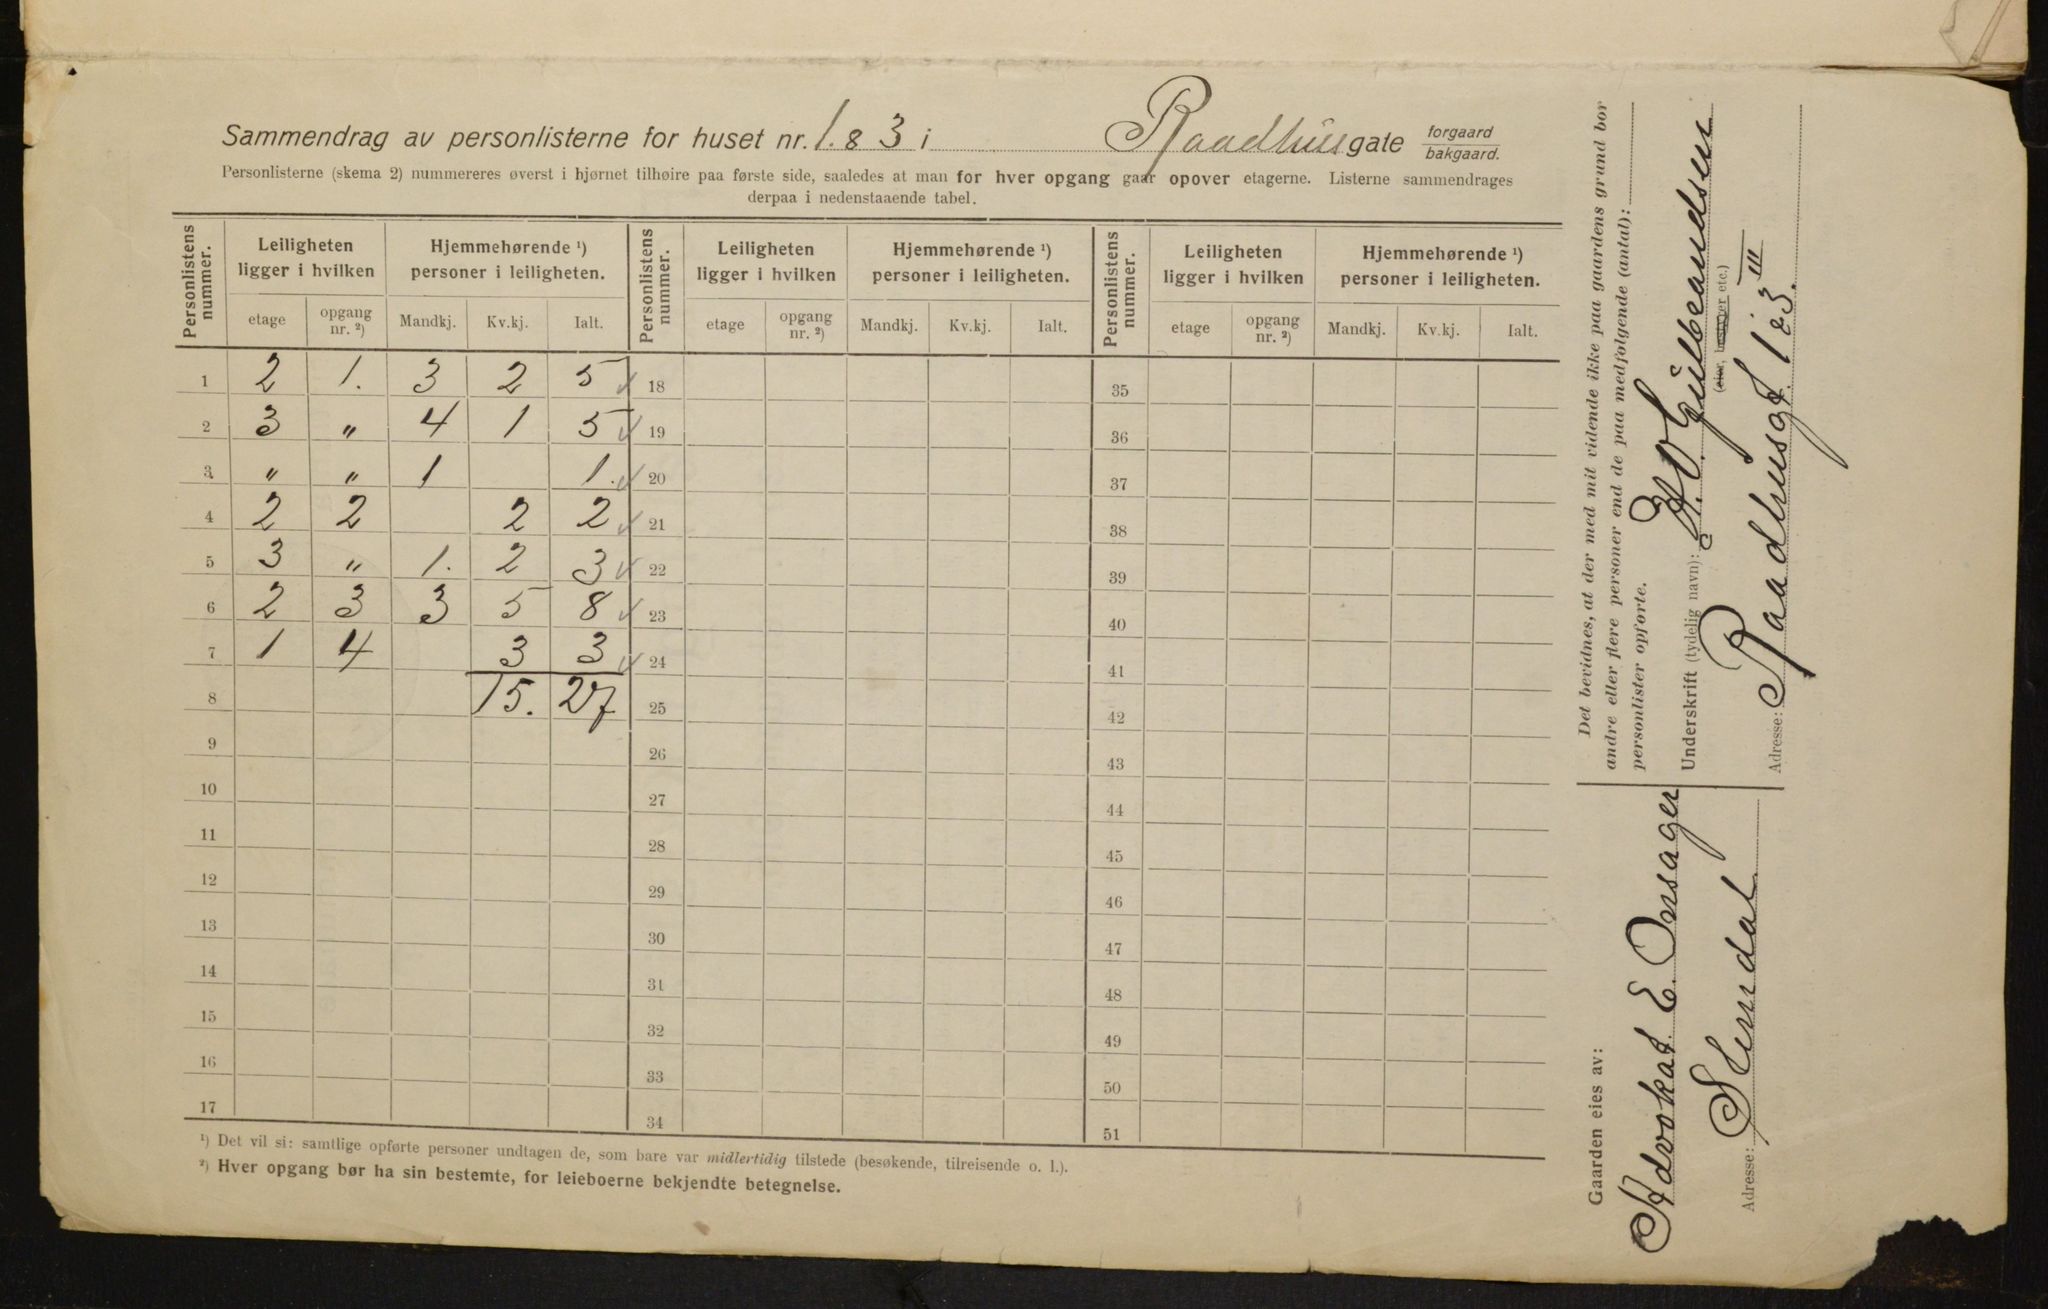 Sammendrag av personlisterne for huset nr. 1. & 3 i Raadhusgate forgaard bakgaard.
Personlisterne (skema 2) nummereres øverst i hjørnet tilhøire paa første side, saaledes at man for hver opgang gaar opover etagerne. Listerne sammendrages
derpaa i nedenstaaende tabel.
Personlistens nummer. Leiligheten ligger i hvilken Hjemmehørende ¹) personer i leiligheten. Personlistens nummer. Leiligheten ligger i hvilken Hjemmehørende ¹) personer i leiligheten. Personlistens nummer. Leiligheten ligger i hvilken Hjemmehørende ¹) personer i leiligheten.
etage opgang nr. ²) Mandkj. Kv.kj. Ialt. etage opgang nr. ²) Mandkj. Kv.kj. Ialt. etage opgang nr. ²) Mandkj. Kv.kj. Ialt.
1 2 1. 3 2 5 18 35
2 3 " 4 1 5 19 36
3 " " 1 1. 20 37
4 2 2 2 2 21 38
5 3 " 1. 2 3 22 39
6 2 3 3 5 8 23 40
7 1 4 3 3 24 41
8 15. 27 25 42
9 26 43
10 27 44
11 28 45
12 29 46
13 30 47
14 31 48
15 32 49
16 33 50
17 34 51
¹) Det vil si: samtlige opførte personer undtagen de, som bare var midlertidig tilstede (besøkende, tilreisende o. l.).
²) Hver opgang bør ha sin bestemte, for leieboerne bekjendte betegnelse.
Det bevidnes, at der med mit vidende ikke paa gaardens grund bor
andre eller flere personer end de paa medfølgende (antal):
personlister opførte.
Underskrift (tydelig navn): H. Gulbrandsen
(eier, bestyrer etc.)
Adresse: Raadhusgt. 1 & 3 III
Gaarden eies av:
Advokat E. Onsager
Adresse: Slemdal